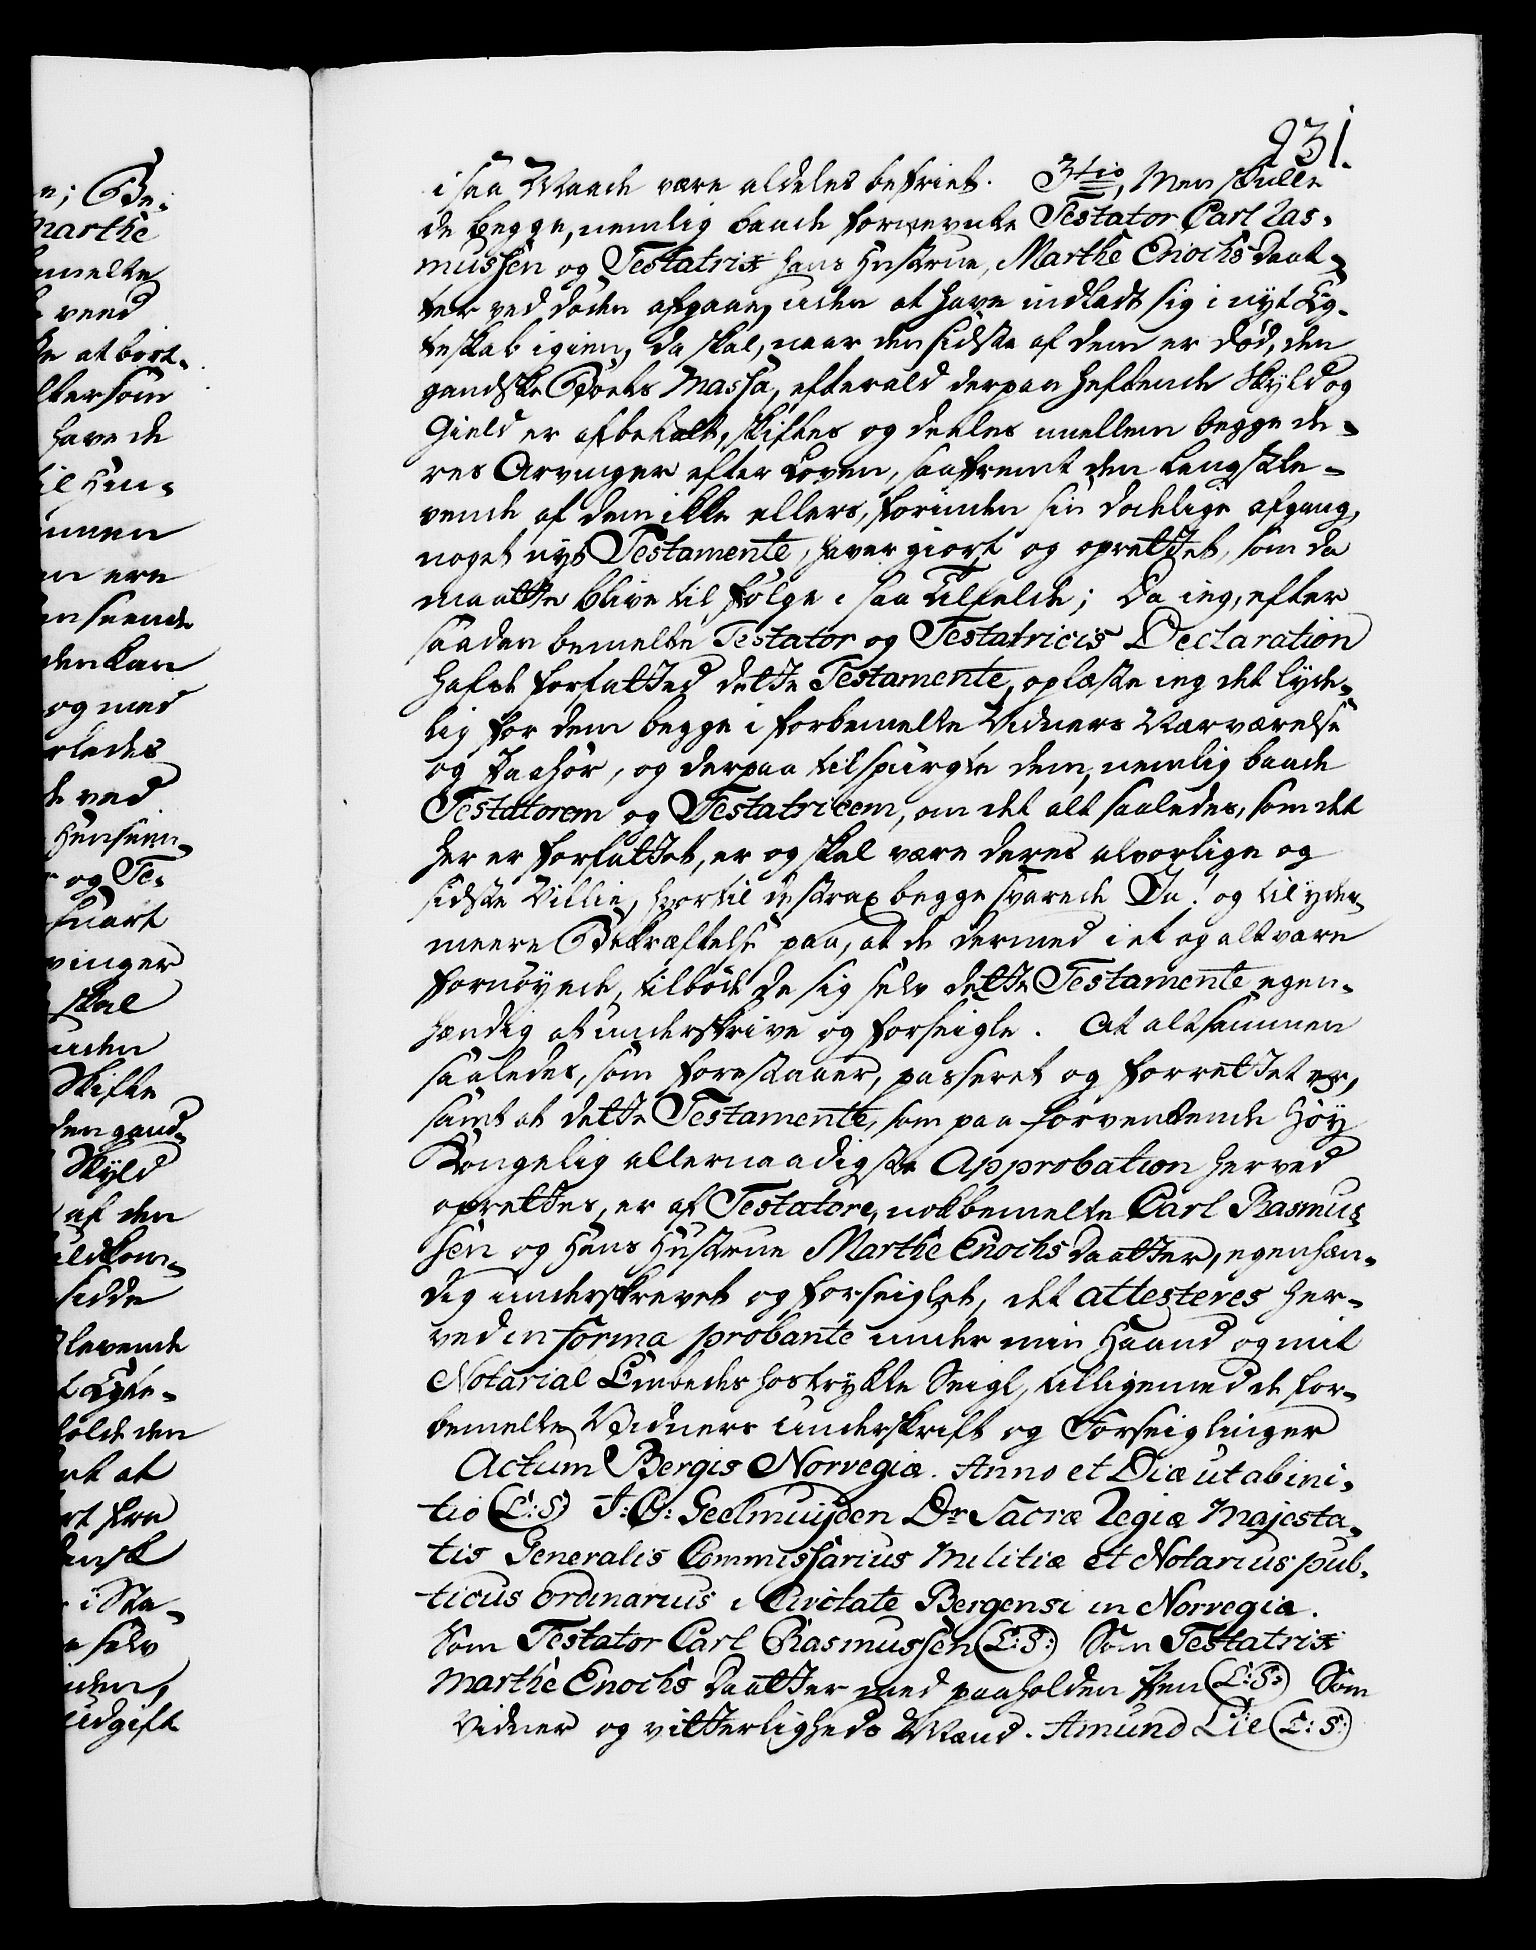 231.
i saa Maade være aldeles befriet. 3tio, Men skulle
de begge, nemlig baade fornevnte Testator Carl Ras-
mussen og Testatrix hans Hustrue, Marthe Enochs Daat-
ter ved døden afgaae, uden at have indladt sig i nyt Eg-
teskab igien, da skal, naar den sidste af dem er død, den
gandske Boets Massa, efter ald derpaa heftende Skyld og
Gield er afbetalt, skiftes og deeles mellem begge de-
res Arvinger efter Loven, saafremt den længstle-
vende af dem ikke ellers, forinden sin dødelige afgang,
noget nyt Testamente, haver giort og oprettet, som da
maatte blive til følge i saa tilfelde; Da ieg, efter
saaden bemelte Testator og Testatricis Declaration
hafde forfatted dette Testamente, oplæste ieg det lyde-
lig for dem begge i forbemelte Vidners Nærværelse
og Paahør, og derpaa tilspurgte dem, nemlig baade
Testatorem og Testatricem, om det alt saaledes, som det
her er forfattet, er og skal være deres alvorlige og
sidste Villie, hvortil de strax begge svarede Ja! og til yder-
meere Bekræftelse paa, at de dermed i et og alt vare
fornøyede, tilbøde de sig selv dette Testamente egen-
hændig at underskrive og forseigle. At altsammen
saaledes, som forestaaer, passeret og forrettet er,
samt at dette Testamente, som paa forventende Høy
Kongelig allernaadigste Approbation herved
oprettes, er af Testatore, nokbemelte Carl Rasmus-
sen og Hans Hustrue Marthe Enochs Daatter, egenhæn-
dig underskrevet og forseiglet, det attesteres her-
ved in forma probante under min Haand og mit
Notarial Embedes hostrykte Seigl, tilligemed de for-
bemelte Vidners underskrift og Forseiglinger
Actum Bergis Norvegiæ. Anno et Die ut ab ini-
tio (L:S) J: C: Geelmuijden Dr Sacræ Regiæ Majesta-
tis Generalis Commissarius Militiæ et Notarius pub-
licus ordinarius i Civitate Bergensi in Norvegia.
Som Testator Carl Rasmussen (L:S:) Som Testatrix
Marthe Enochs Daatter med paaholden Pen (L:S:) Som
Vidner og vitterligheds Mænd. Amund Lie (L:S:)